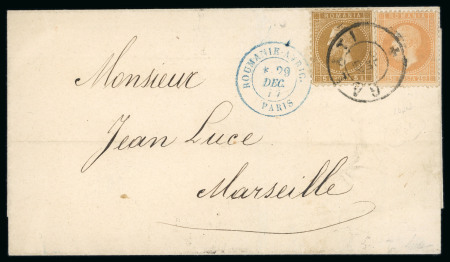 ROMANIA
ROMANIA
ROUMANIE-AFRIC.
* 29
DEC.
77
PARIS
Monsieur
Jean Luce
Marseille